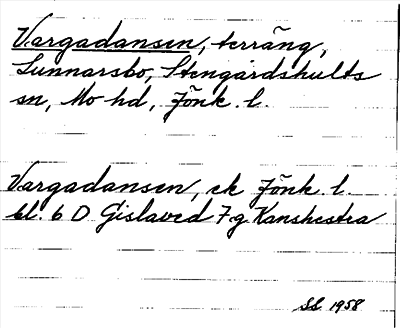 Vargadansen, terräng,
Sunnarsbo, Stengårdshults
sn, Mo hd, Jönk. l.
Vargadansen, ek Jönk. l.
bl. 6 D Gislaved 7g Kanshestra
SS 1958